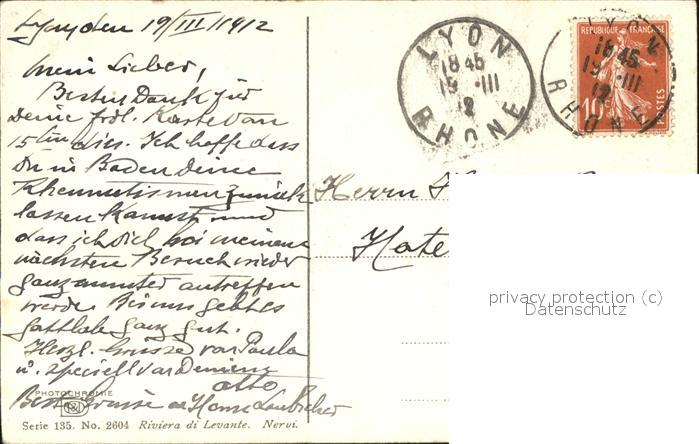 Lyon, den 19/III/1912
Mein Lieber,
Besten Dank für
Deine frdl. Karte vom
15ten dies. Ich hoffe dass
Du in Baden deine
Rheumatismen zurück
lassen kannst und
dass ich Dich bei meinem
nächsten Besuch wieder
ganz munter antreffen
werde. Bei uns geht es
gottlob ganz gut.
Herzl. Grüsse von Paula
u. speciell von Deinem
Otto
Beste Grüsse an
Herrn
LYON
18 45
19 III
12
RHONE
REPUBLIQUE FRANÇAISE
10
POSTES
LYON
18 45
19 III
12
RHONE
privacy protection (c)
Datenschutz
PHOTOCHROMIE
Serie 135. No. 2604 Riviera di Levante. Nervi.